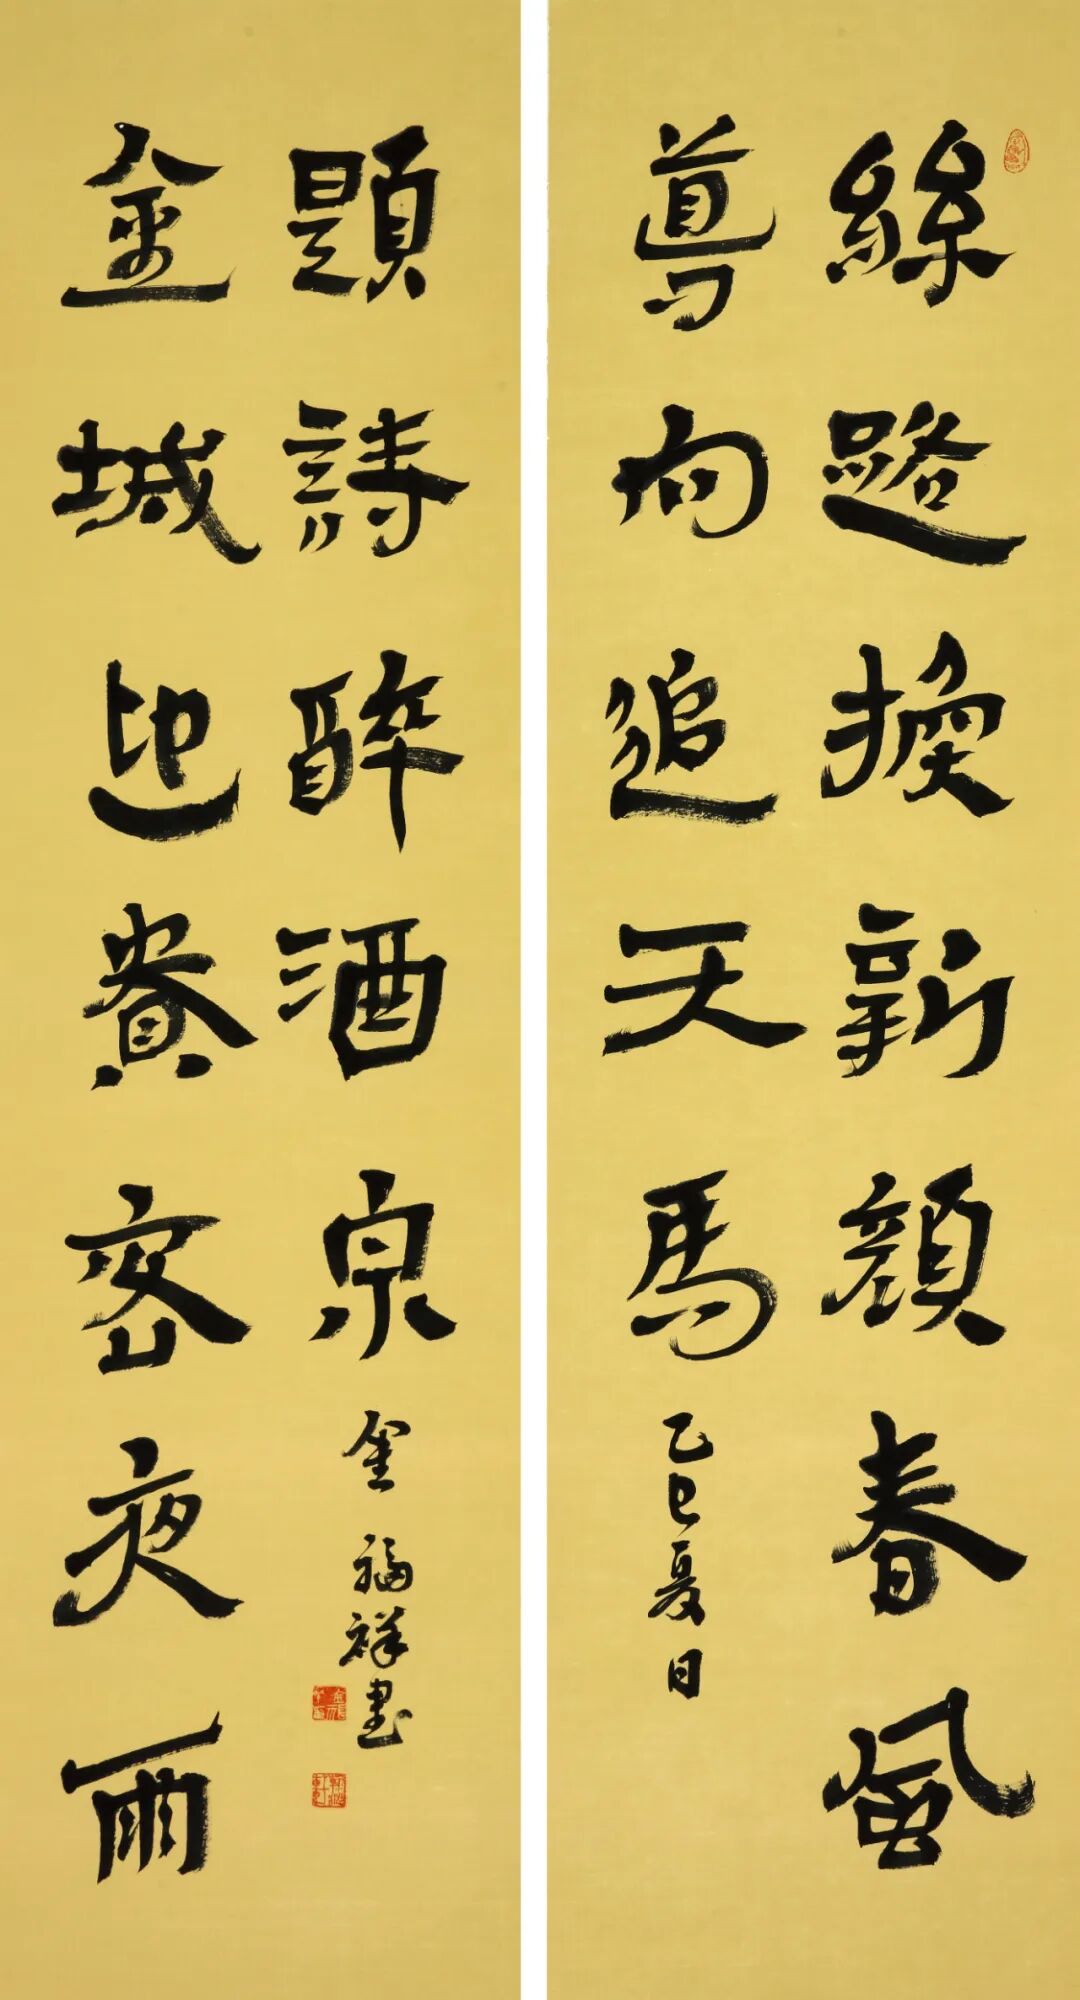 絲路換新顏春風
導向追天馬
乙巳夏日
金城迎貴客夜雨
題詩醉酒泉
金福祥書